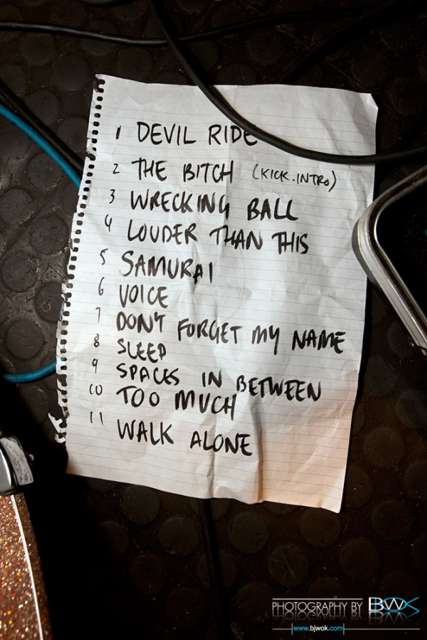 1 DEVIL RIDE
2 THE BITCH (KICK.INTRO)
3 WRECKING BALL
4 LOUDER THAN THIS
5 SAMURAI
6 VOICE
7 DON'T FORGET MY NAME
8 SLEEP
9 SPACES IN BETWEEN
10 TOO MUCH
11 WALK ALONE
PHOTOGRAPHY BY BWOK
www.bjwok.com